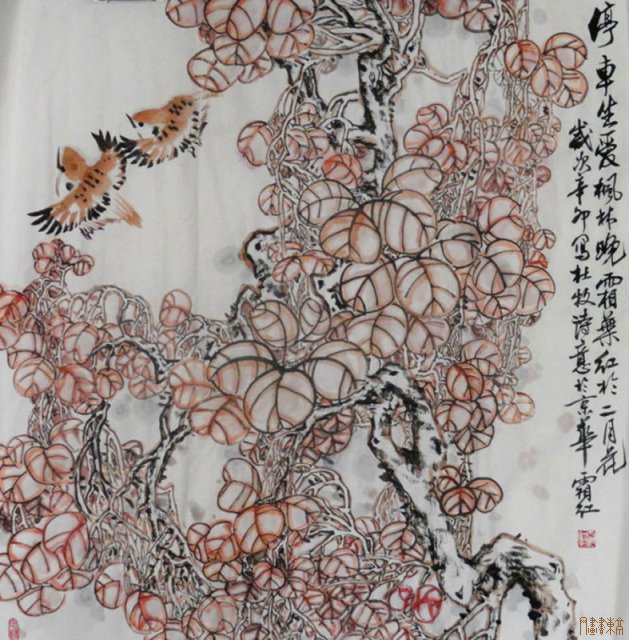 停車坐爱楓林晚霜葉红於二月花
歲次辛卯写杜牧诗意於京華霜红